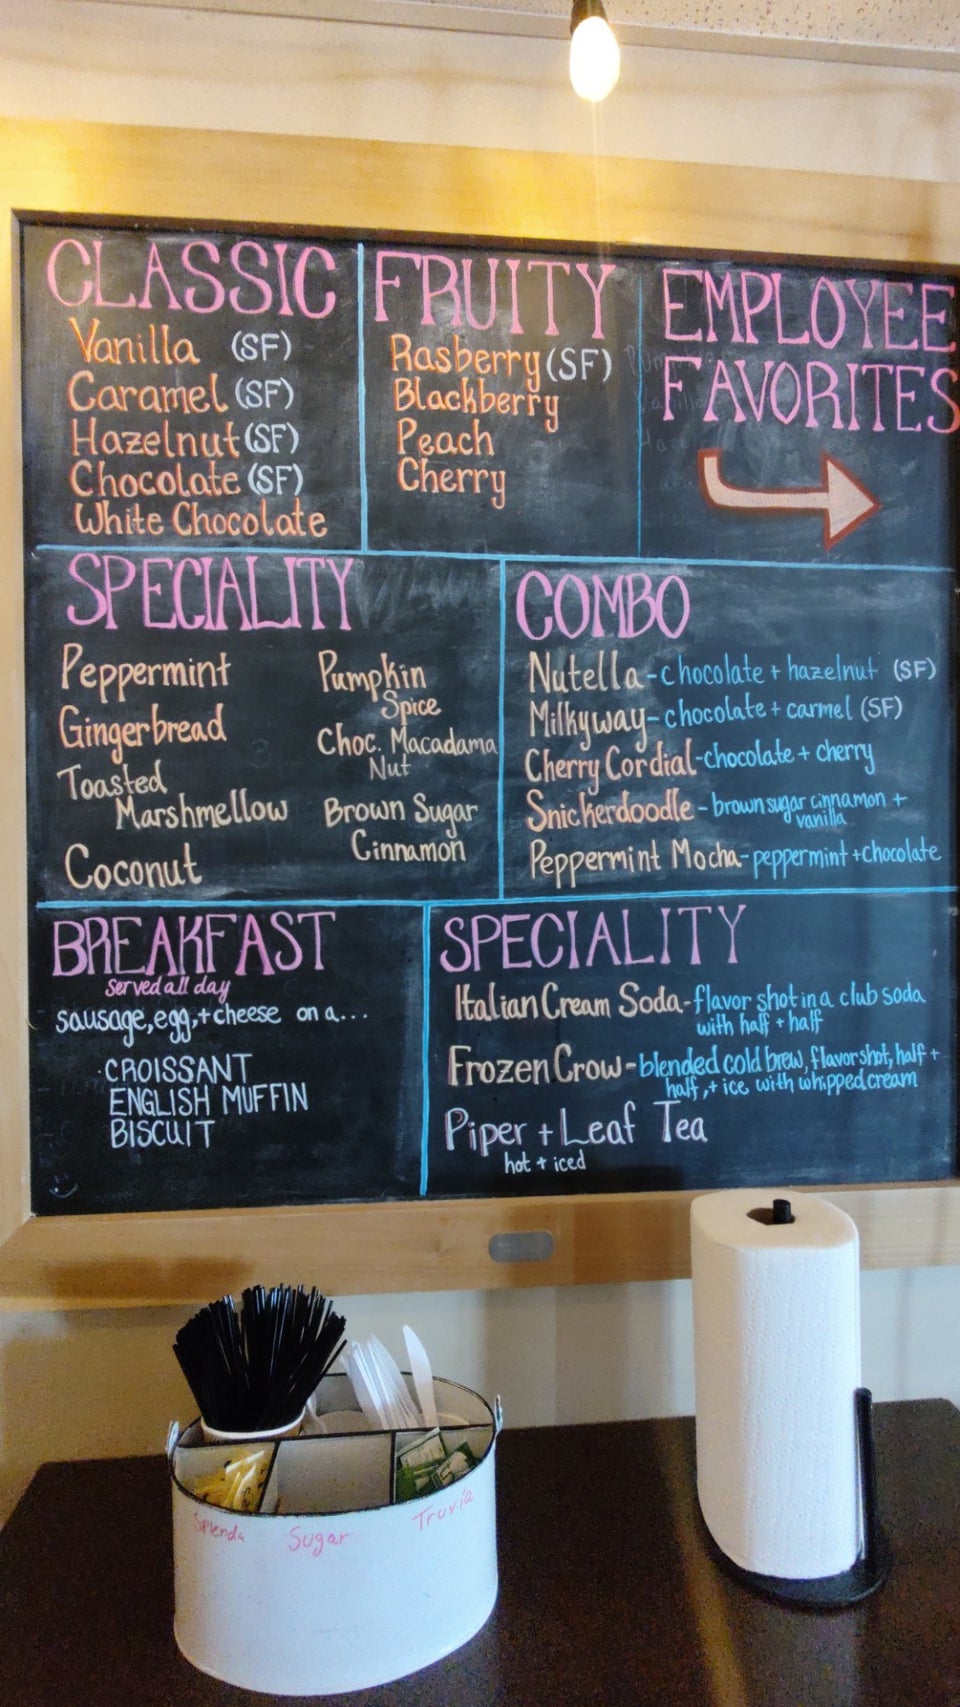 CLASSIC
Vanilla (SF)
Caramel (SF)
Hazelnut (SF)
Chocolate (SF)
White Chocolate
FRUITY
Rasberry (SF)
Blackberry
Peach
Cherry
EMPLOYEE
FAVORITES
SPECIALITY
Peppermint
Gingerbread
Toasted
Marshmellow
Coconut
Pumpkin
Spice
Choc. Macadama
Nut
Brown Sugar
Cinnamon
COMBO
Nutella - chocolate + hazelnut (SF)
Milkyway - chocolate + carmel (SF)
Cherry Cordial - chocolate + cherry
Snickerdoodle - brown sugar cinnamon +
vanilla
Peppermint Mocha - peppermint + chocolate
BREAKFAST
served all day
sausage, egg, + cheese on a...
CROISSANT
ENGLISH MUFFIN
BISCUIT
SPECIALITY
Italian Cream Soda - flavor shot in a club soda
with half + half
Frozen Crow - blended cold brew, flavor shot, half +
half, + ice with whipped cream
Piper + Leaf Tea
hot + iced
Splenda
Sugar
Truvia